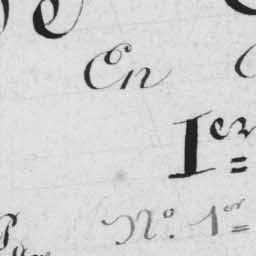 En
I.er
N.o 1.er